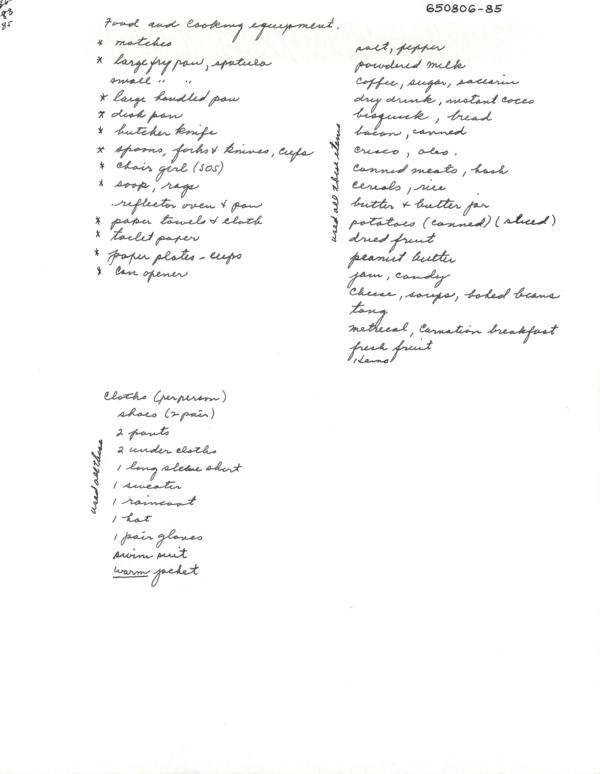 650806-85
83
85
Food and Cooking equipment.
* matches
* large fry pan, spatula
small " "
* large handled pan
* dish pan
* butcher knife
* spoons, forks & knives, cups
* chair girl (SOS)
* soap, rags
reflector oven & pan
* paper towels & cloth
* toilet paper
* paper plates - cups
* can opener
used all these items
salt, pepper
powdered milk
coffee, sugar, saccarin
dry drink, instant cocoa
bisquick, bread
bacon, canned
crisco, oleo.
canned meats, hash
cereals, rice
butter & butter jar
potatoes (canned) (sliced)
dried fruit
peanut butter
jam, candy
cheese, soups, baked beans
tang
metrecal, Carnation breakfast
fresh fruit
Cloths (per person)
used all these
shoes (2 pair)
2 pants
2 under cloths
1 long sleeve shirt
1 sweater
1 raincoat
1 hat
1 pair gloves
swim suit
warm jacket